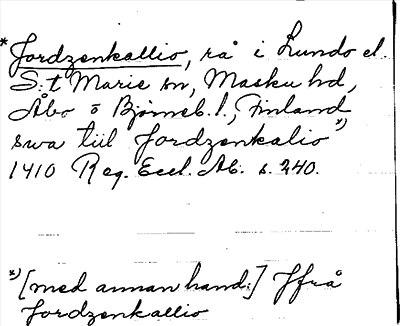 * Jordzenkallio, rå i Lundo el.
S:t Marie sn, Masku hd,
Åbo o Björneb. l., Finland
swa tiil Jordzenkalio x)
1410 Reg. Eccl. Ab. s. 240.
x) [med annan hand:] Jfrå
Jordzenkallio